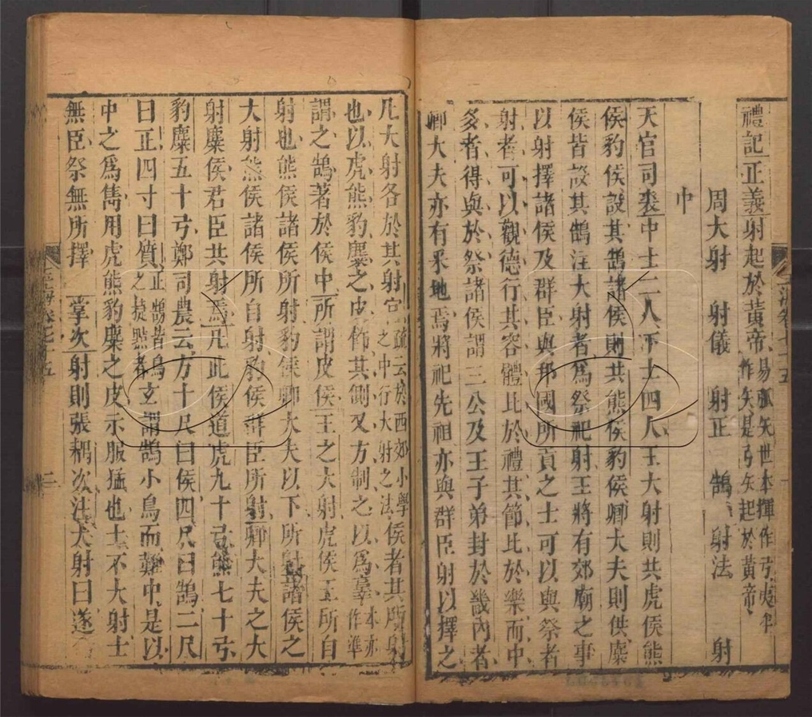 禮記正義射起於黃帝易弧矢世本揮作弓夷牟作矢是弓矢起於黃帝
周大射 射儀 射正 鵠 射法 射
中
天官司裘中士二人下士四人王大射則共虎侯熊
侯豹侯設其鵠諸侯則共熊侯豹侯卿大夫則供麋
侯皆設其鵠注大射者爲祭祀射王將有郊廟之事
以射擇諸侯及群臣與邦國所貢之士可以與祭者
射者可以觀德行其容體比於禮其節比於樂而中
多者得與於祭諸侯謂三公及王子弟封於畿內者
卿大夫亦有采地焉將祀先祖亦與群臣射以擇之
凡大射各於其射宮疏云於西郊小學之中行大射之法侯者其所射
也以虎熊豹麋之皮飾其側又方制之以爲䵯本亦作準
謂之鵠著於侯中所謂皮侯王之大射虎侯王所自
射也熊侯諸侯所射豹侯卿大夫以下所射諸侯之
大射熊侯諸侯所自射豹侯群臣所射卿大夫之大
射麋侯君臣共射焉凡此侯道虎九十弓熊七十弓
豹麋五十弓鄭司農云方十尺曰侯四尺曰鵠二尺
曰正四寸曰質正鵠皆鳥之捷黠者玄謂鵠小鳥而難中是以
中之爲雋用虎熊豹麋之皮示服猛也士不大射士
無臣祭無所擇 掌次射則張耦次注大射曰遂